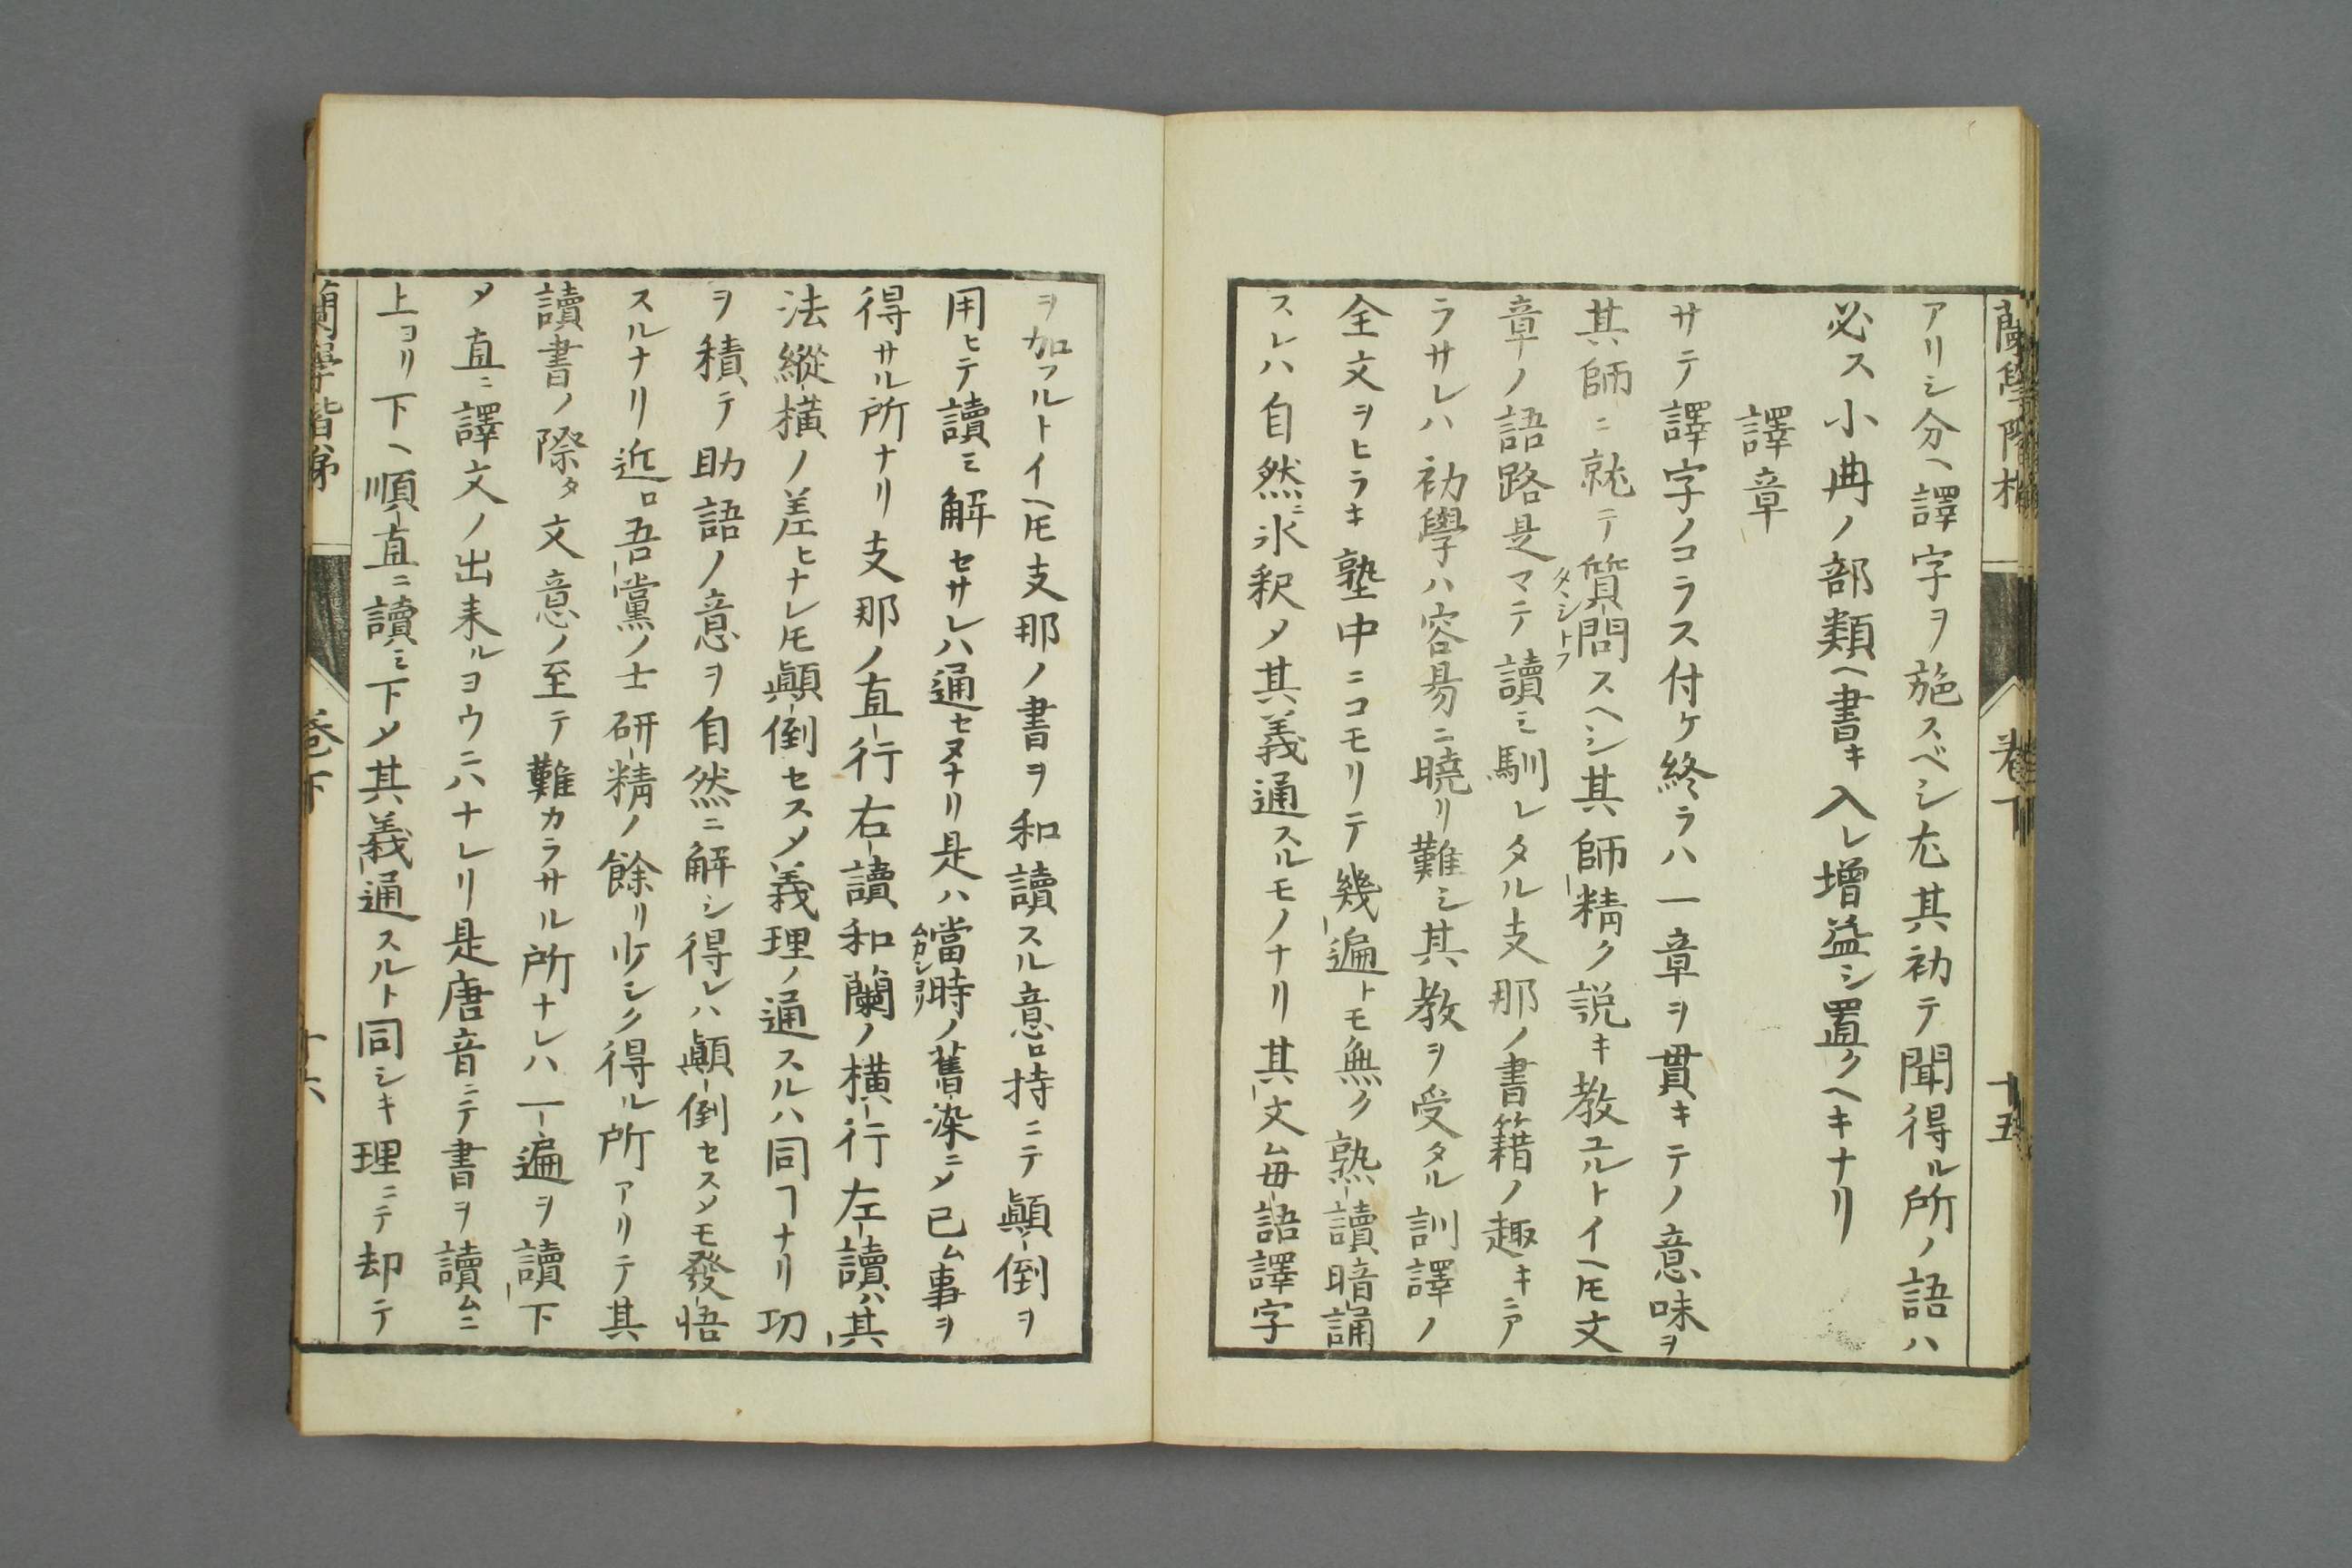 蘭學階梯 卷下 十五
アリシ分ヘ譯字ヲ施スベシ尤其初テ聞得ル所ノ語ハ
必ス小冊ノ部類ヘ書キ入レ增益シ置クヘキナリ
譯章
サテ譯字ノコラス付ケ終ラハ一章ヲ貫キテノ意味ヲ
其師ニ就テ質問スヘシ其師精ク説キ教ユルトイヘ𪜈文
タヽシトフ
章ノ語路是マテ讀ミ馴レタル支那ノ書籍ノ趣キニア
ラサレハ初學ハ容易ニ曉リ難シ其教ヲ受タル訓譯ノ
全文ヲヒラキ塾中ニコモリテ幾遍トモ無ク熟讀暗誦
スレハ自然ニ氷釈〆其義通スルモノナリ其文毎語譯字
ヲ加フルトイヘ𪜈支那ノ書ヲ和讀スル意口持ニテ顚倒ヲ
用ヒテ讀ミ解セサレハ通セヌナリ是ハ當時ノ舊染ニ〆已ム事ヲ
ムカシヨリ
得サル所ナリ支那ノ直行右讀和蘭ノ橫行左讀ハ其
法縱橫ノ差ヒナレ𪜈顚倒セス〆義理ノ通スルハ同ヿナリ功
ヲ積テ助語ノ意ヲ自然ニ解シ得レハ顚倒セス〆モ發悟
スルナリ近ロ吾黨ノ士研精ノ餘リ少シク得ル所アリテ其
讀書ノ際タ文意ノ至テ難カラサル所ナレハ一遍ヲ讀下
〆直ニ譯文ノ出来ルヨウニハナレリ是唐音ニテ書ヲ讀ムニ
上ヨリ下ヘ順直ニ讀ミ下〆其義通スルト同シキ理ニテ却テ
蘭學階梯 卷下 十六